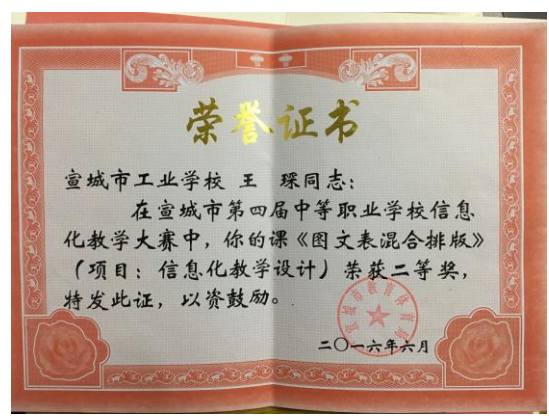 荣誉证书
宣城市工业学校 王 琛同志:
在宣城市第四届中等职业学校信息
化教学大赛中,你的课《图文表混合排版》
(项目:信息化教学设计)荣获二等奖,
特发此证,以资鼓励。
宣城市教育体育局
二〇一六年六月